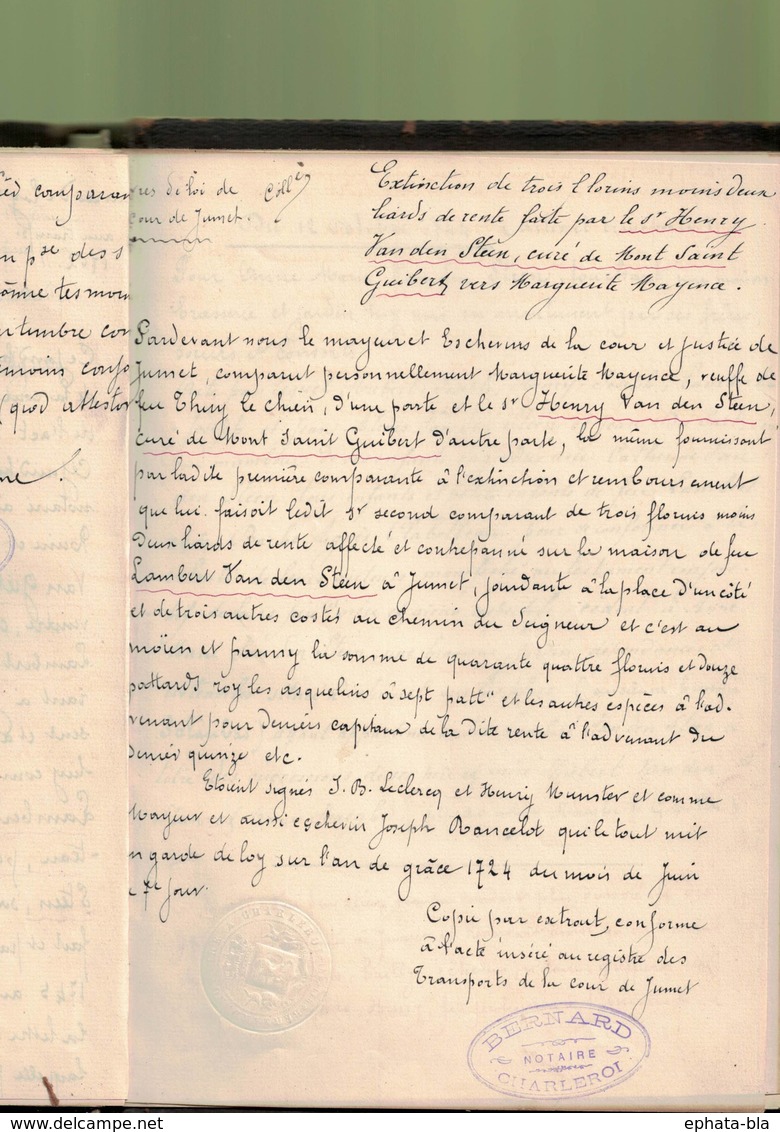 res de loi de
cour de Jumet.
Extinction de trois florins moins deux
liards de rente faite par le sr Henry
Van den Steen, curé de Mont Saint
Guibert, vers Marguerite Mayence.
Pardevant nous le mayeur et Eschevins de la cour et justice de
Jumet, comparut personnellement Marguerite Mayence, veuffe de
feu Thiry le chien, d'une parte et le sr Henry Van den Steen,
curé de Mont Saint Guibert d'autre parte, la même fournissant
par ladite première comparante à l'extinction et remboursement
que lui faisoit ledit sr second comparant de trois florins moins
Deux liards de rente affecté et contrepanné sur la maison de feu
Lambert Van den Steen à Jumet, joindante à la place d'un côté
et de trois autres costés au chemin du Seigneur et c'est au
moïen et parmy la somme de quarante quattre florins et douze
pattards roy les asquelins à sept patt" et les autres espèces à l'ad-
venant pour deniers capitaux de la dite rente à l'advenant du
denier quinze etc.
Etoient signés J. B. Leclercq et Henry Munster et comme
Mayeur et aussi eschevin Joseph Rancelot qui le tout mit
n garde de loy sur l'an de grâce 1724 du mois de Juin
e 7e jour.
Copie par extrait, conforme
à l'acte inséré au registre des
Transports de la cour de Jumet
BERNARD
NOTAIRE
CHARLEROI
ied comparan
n pse des s
tesmoin
rtembre con
emoins
(quod attestor
ephata-bla